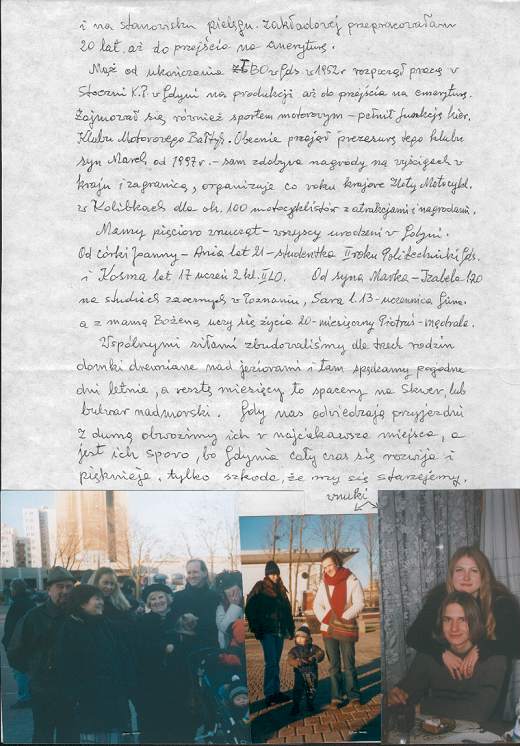 i na stanowisku pielęgn. zakładowej przepracowałam
20 lat, aż do przejścia na emeryturę.
Mąż od ukończenia TBO w Gds. w 1952 r rozpoczął pracę w
Stoczni K.P. w Gdyni na produkcji aż do przejścia na emeryturę.
Zajmował się również sportem motorowym – pełnił funkcję kier.
Klubu Motorowego Bałtyk. Obecnie przejął prezesurę tego klubu
syn Marek, od 1997 r. – sam zdobywa nagrody na wyścigach w
kraju i zagranicą, organizuje co roku krajowe Zloty Motocykl.
w Kolibkach dla ok. 100 motocyklistów z atrakcjami i nagrodami.
Mamy pięcioro wnucząt – wszyscy urodzeni w Gdyni.
Od córki Joanny – Ania lat 21 – studentka II roku Politechniki Gds.
i Kosma lat 17 uczeń 2 kl. II LO. Od syna Marka – Izabela l 20
na studiach zaocznych w Poznaniu, Sara l. 13 – uczennica Gimn.
a z mamą Bożeną uczy się życia 20-miesięczny Piotruś – mądrala.
Wspólnymi siłami zbudowaliśmy dla trzech rodzin
domki drewniane nad jeziorami i tam spędzamy pogodne
dni letnie, a resztę miesięcy to spacery na Skwer, lub
bulwar nadmorski. Gdy nas odwiedzają przyjezdni
z dumą obwozimy ich w najciekawsze miejsca, a
jest ich sporo, bo Gdynia cały czas się rozwija i
pięknieje, tylko szkoda, że my się starzejemy.
wnuki